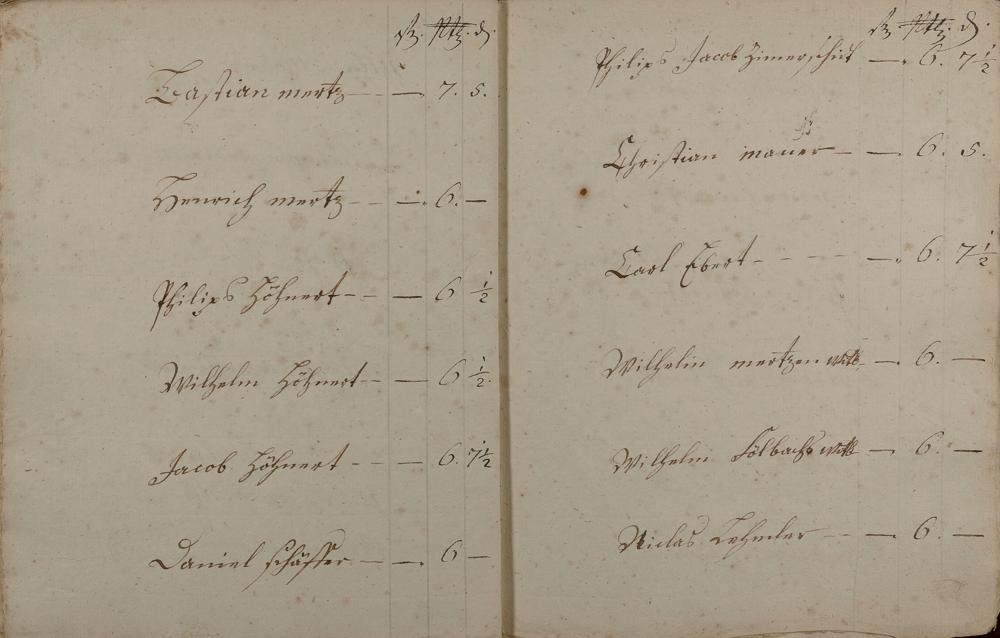 Bastian mertz — 7. 5.
Henrich mertz — 6. —
Philips Höhnert — 6 1/2
Wilhelm Höhnert — 6 1/2
Jacob Höhnert — 6. 7 1/2
Daniel schäffer — 6 —
Philips Jacob Zimerschit — 6. 7 1/2
Christian mauer — 6. 5.
Carl Ebert — 6. 7 1/2
Wilhelm mertzen witb — 6. —
Wilhelm Fölbachs witb — 6. —
Niclas Lehmler — 6. —